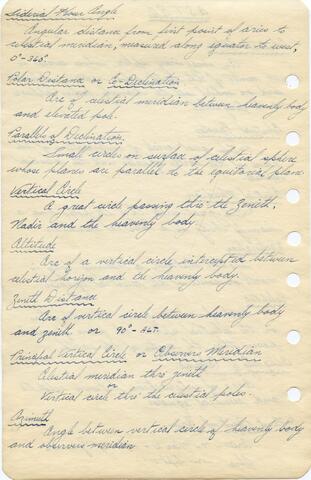 Siderial Hour Angle
Angular distance from first point of aries to
celestial meridian, measured along equator to west,
0°-360°.
Polar Distance or Co-Declination
Arc of celestial meridian between heavenly body
and elevated pole.
Parallels of Declination
Small circles on surface of celestial sphere
whose planes are parallel to the equitorial plane
Vertical Circle
A great circle passing thro' the Zenith,
Nadir and the heavenly body
Altitude
Arc of a vertical circle intercepted between
celestial horizon and the heavenly body.
Zenith Distance
Arc of vertical circle between heavenly body
and zenith or 90° - ALT.
Principal Vertical Circle or Observers Meridian
Celestial meridian thro zenith
or
Vertical circle thro' the celestial poles.
Azimuth
Angle between vertical circle of heavenly body
and observers meridian